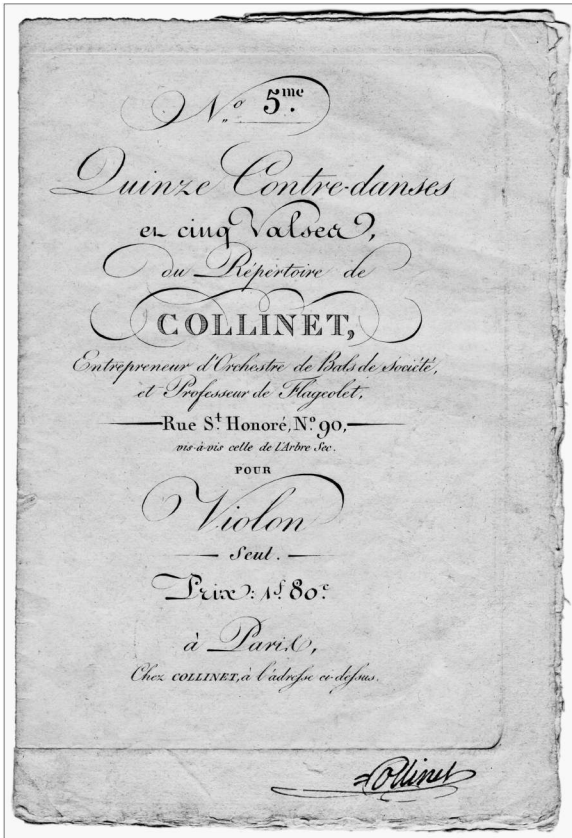 N.º 5.me
Quinze Contre-danses
et cinq Valses,
du Répertoire de
COLLINET,
Entrepreneur d'Orchestre de Bals de Société,
et Professeur de Flageolet,
Rue S.t Honoré, N.º 90,
vis-à-vis celle de l'Arbre Sec.
POUR
Violon
Seul.
Prix: 1.f 80.c
à Paris,
Chez COLLINET, à l'adresse ci-dessus.
Collinet